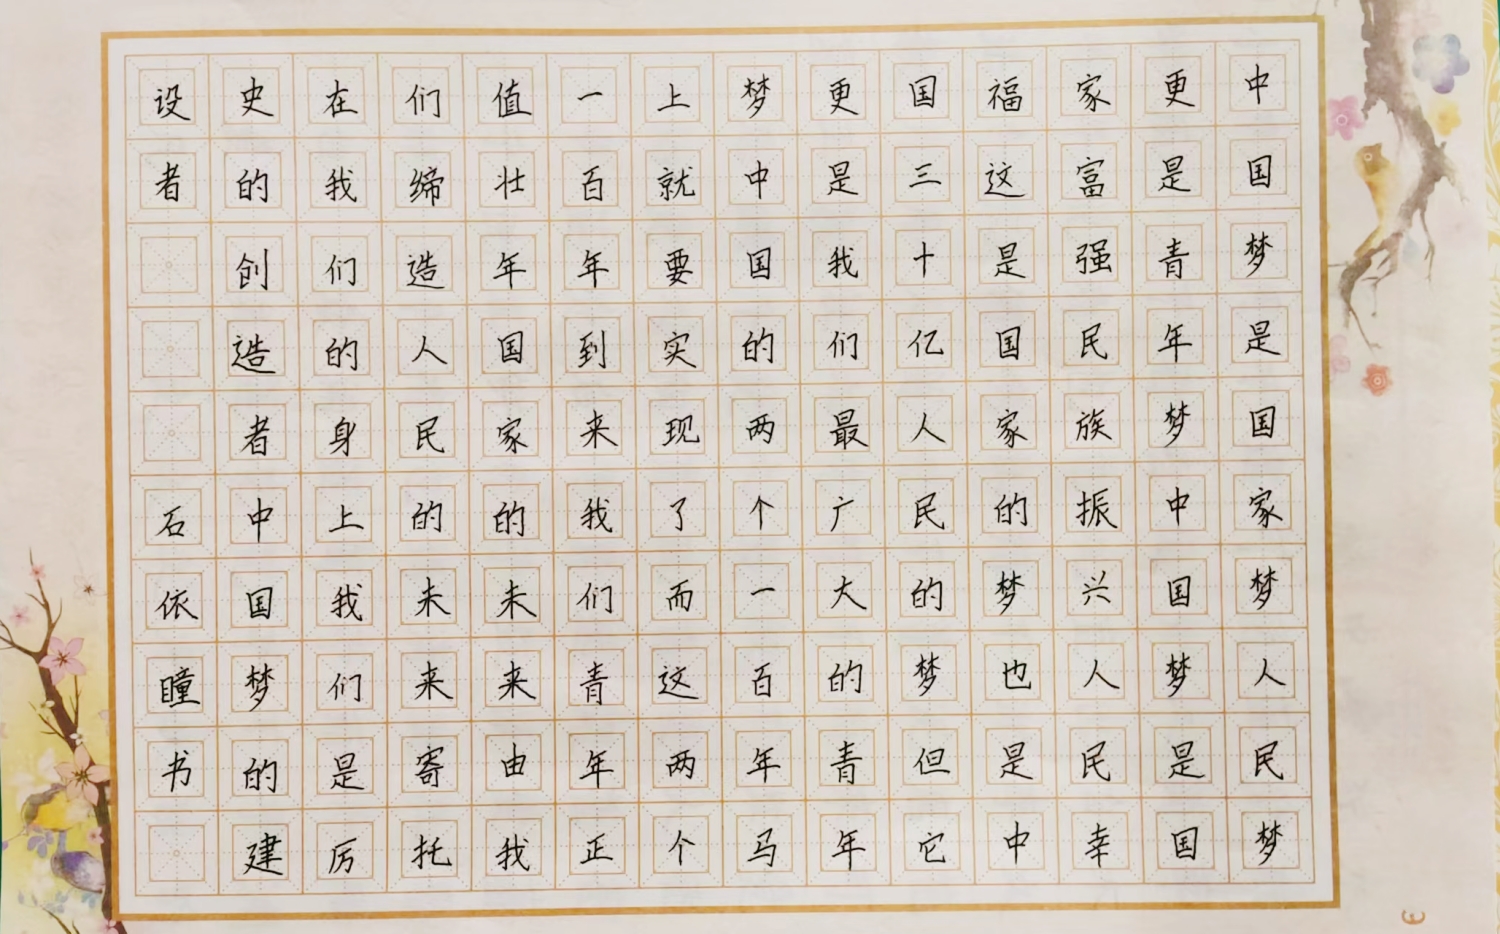 中国梦是国家梦人民梦
更是青年梦中国梦是国
家富强民族振兴人民幸
福这是国家的梦也是中
国三十亿人民的梦但它
更是我们最广大的青年
梦中国的两个一百年马
上就要实现了而这两个
一百年到来我们青年正
值壮年国家的未来由我
们缔造人民的未来寄托
在我们的身上我们是历
史的创造者中国梦的建
设者
石依瞳书